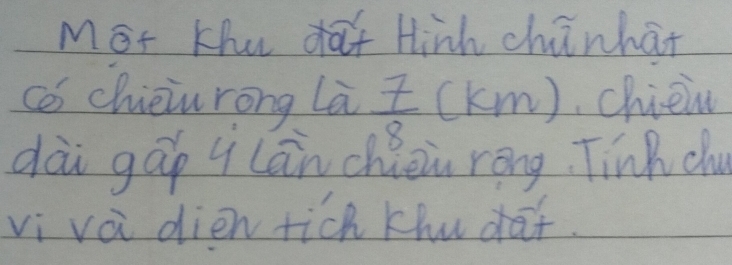 Một khu đất Hình chữ nhật
có chiều rộng là 7/8 (km). chiều
dài gấp 4 lần chiều rộng. Tính chu
vi và diện tích khu đất.